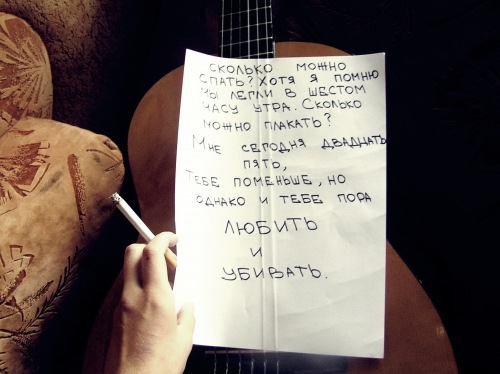 СКОЛЬКО МОЖНО
СПАТЬ? ХОТЯ Я ПОМНЮ
МЫ ЛЕГЛИ В ШЕСТОМ
ЧАСУ УТРА. СКОЛЬКО
МОЖНО ПЛАКАТЬ?
МНЕ СЕГОДНЯ ДВАДЦАТЬ
ПЯТЬ,
ТЕБЕ ПОМЕНЬШЕ, НО
ОДНАКО И ТЕБЕ ПОРА
ЛЮБИТЬ
И
УБИВАТЬ.